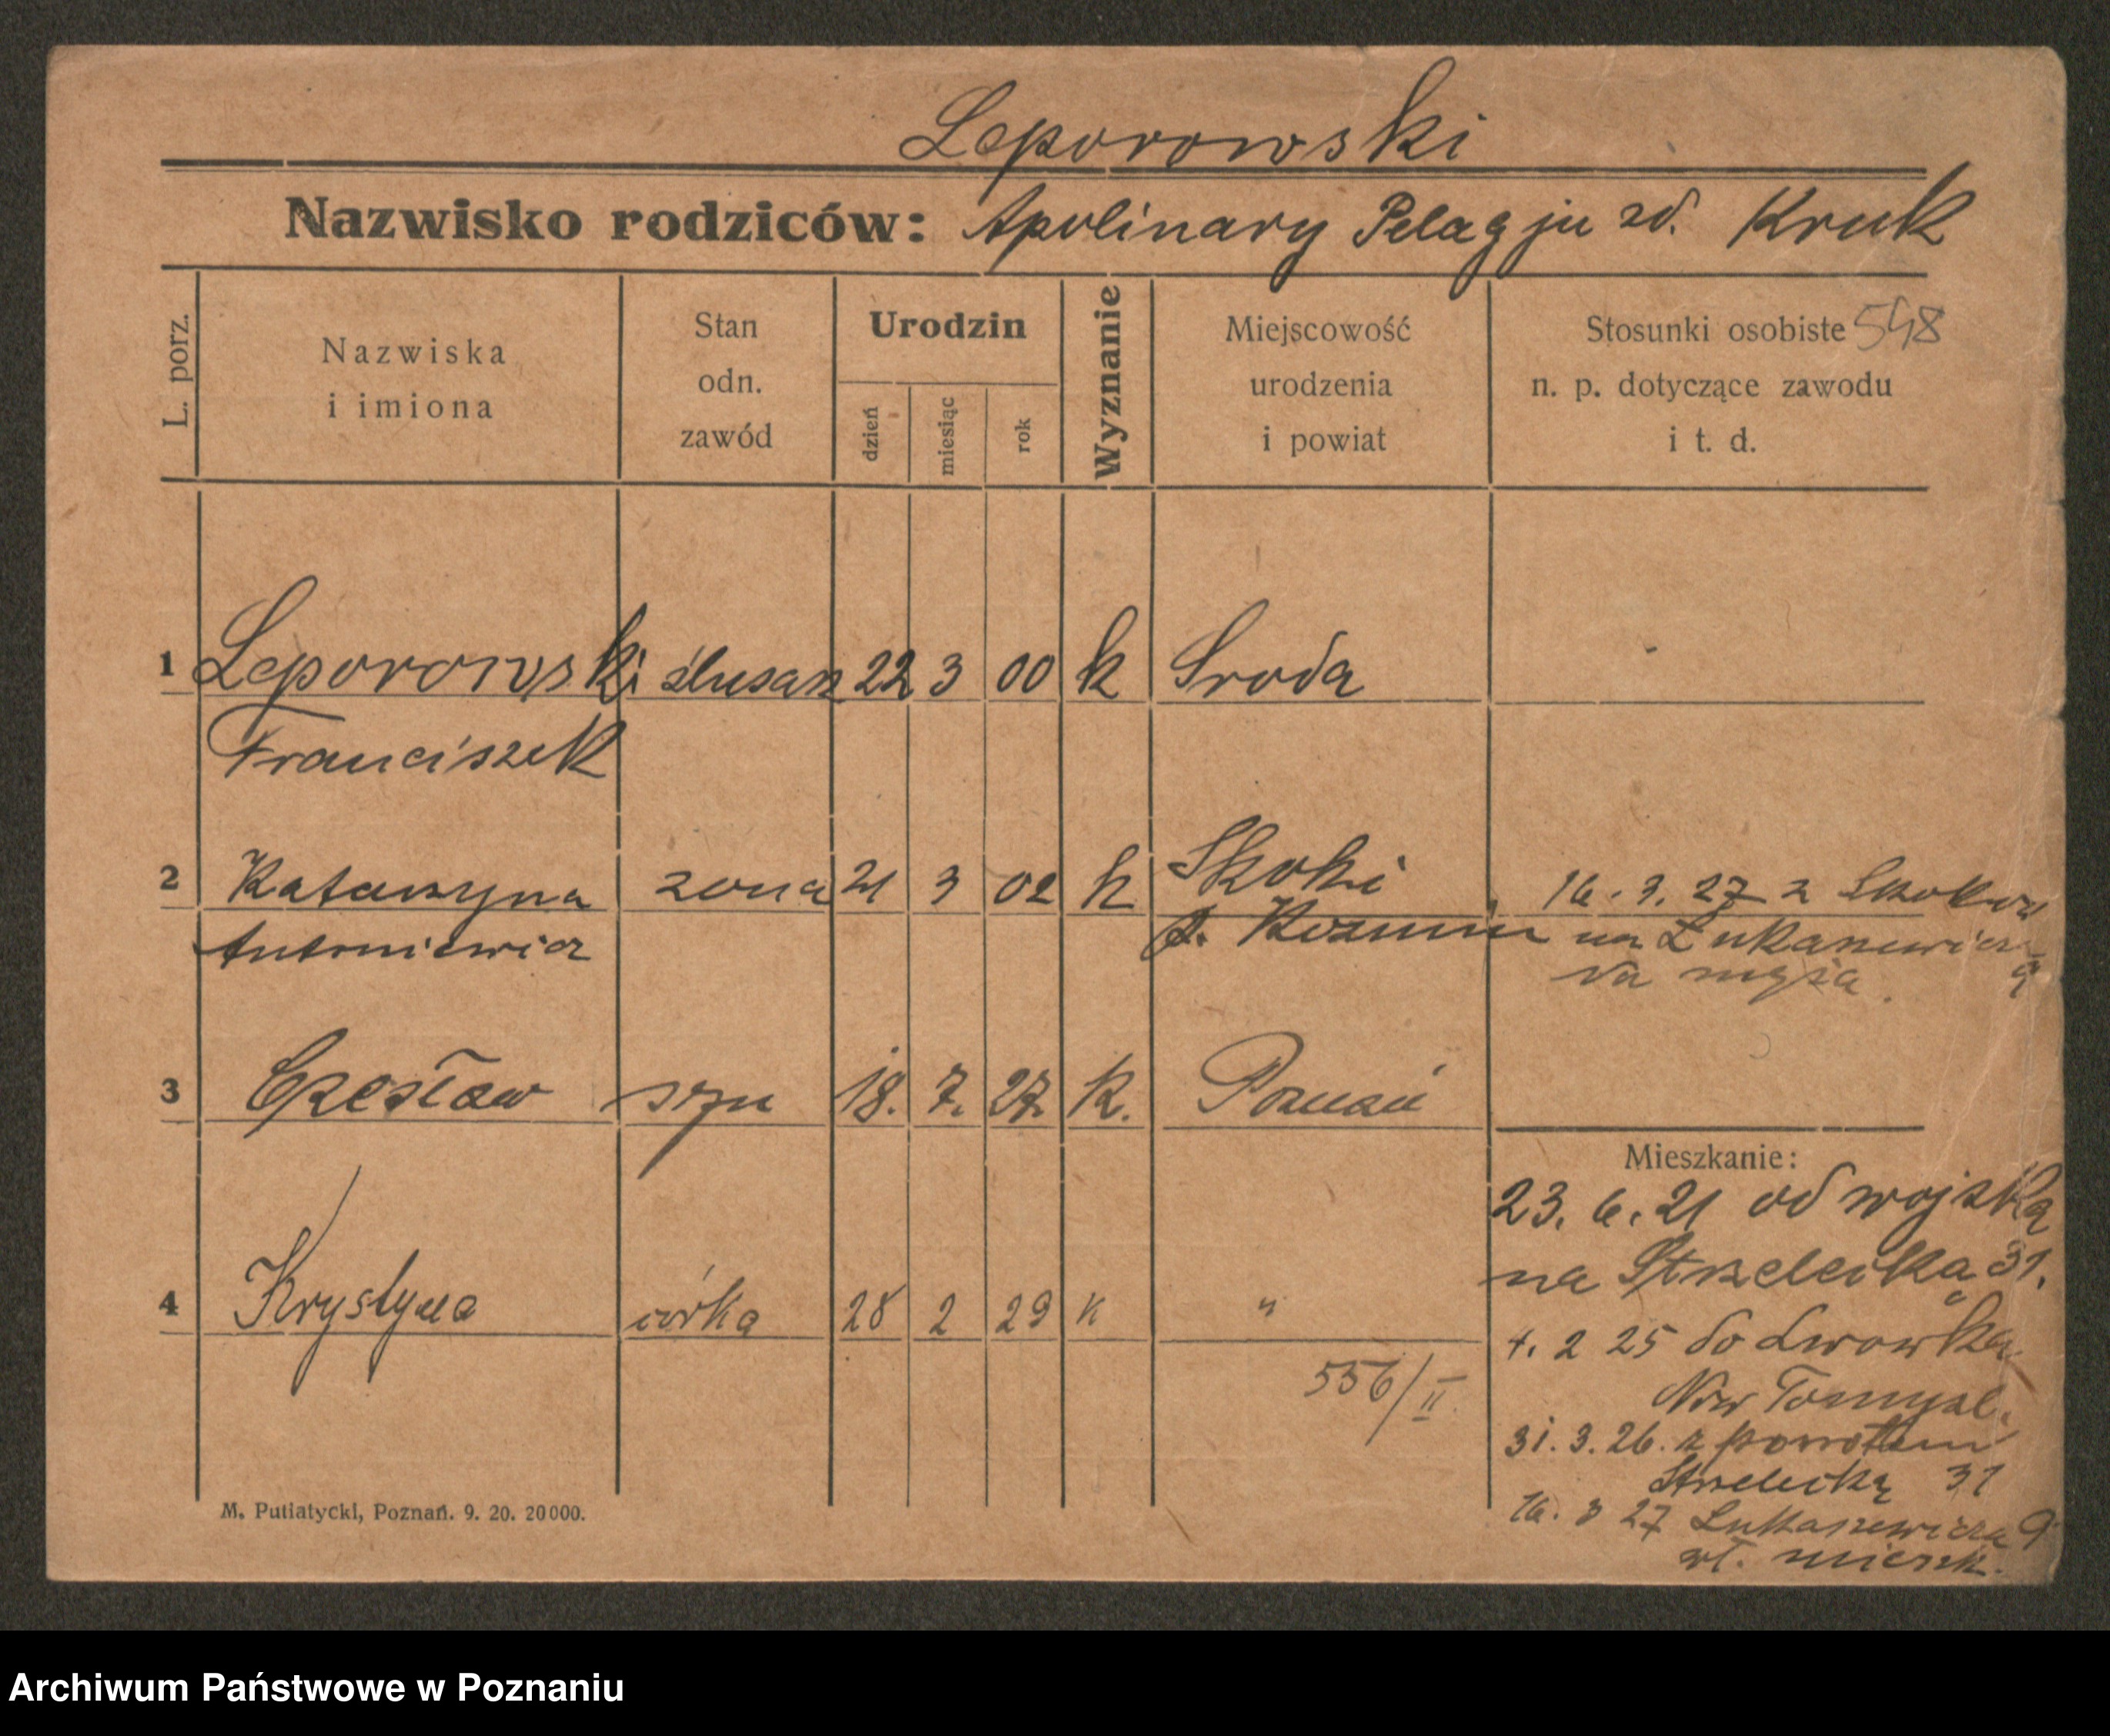 Leporowski
Nazwisko rodziców: Apolinary Pelagju zd. Kruk
L. porz.
Nazwiska
i imiona
Stan
odn.
zawód
Urodzin
dzień
miesiąc
rok
Wyznanie
Miejscowość
urodzenia
i powiat
Stosunki osobiste 548
n. p. dotyczące zawodu
i t. d.
1 Leporowski ślusarz 22 3 00 k Sroda
Franciszek
2 Katarzyna zona 21 3 02 k Skoki 16. 3. 27 z
Antoniewicz p. na Łukaszewicza
9
3 Czesław syn 18. 7. 27. k. Poznań
Mieszkanie:
23. 6. 21 od wojska
na Strzelecką 31.
4 Krystyna córka 28 2 29 k "
4. 2 25 do Lwowka
556/II
Now Tomysl.
31. 3. 26. z powrotem
Strzelecką 31
16. 3 27 Łukaszewicza 9
wł. mieszk.
M. Putiatycki, Poznań. 9. 20. 20000.
Archiwum Państwowe w Poznaniu